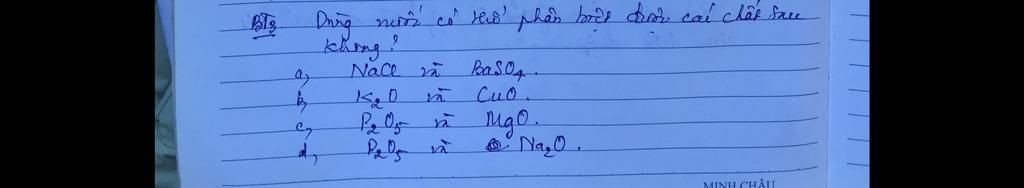 BT3. Dùng nước có thể phân biệt được các chất sau
không?
a, NaCl và BaSO4.
b, K2O và CuO.
c, P2O5 và MgO.
d, P2O5 và Na2O.
MINH CHÂU